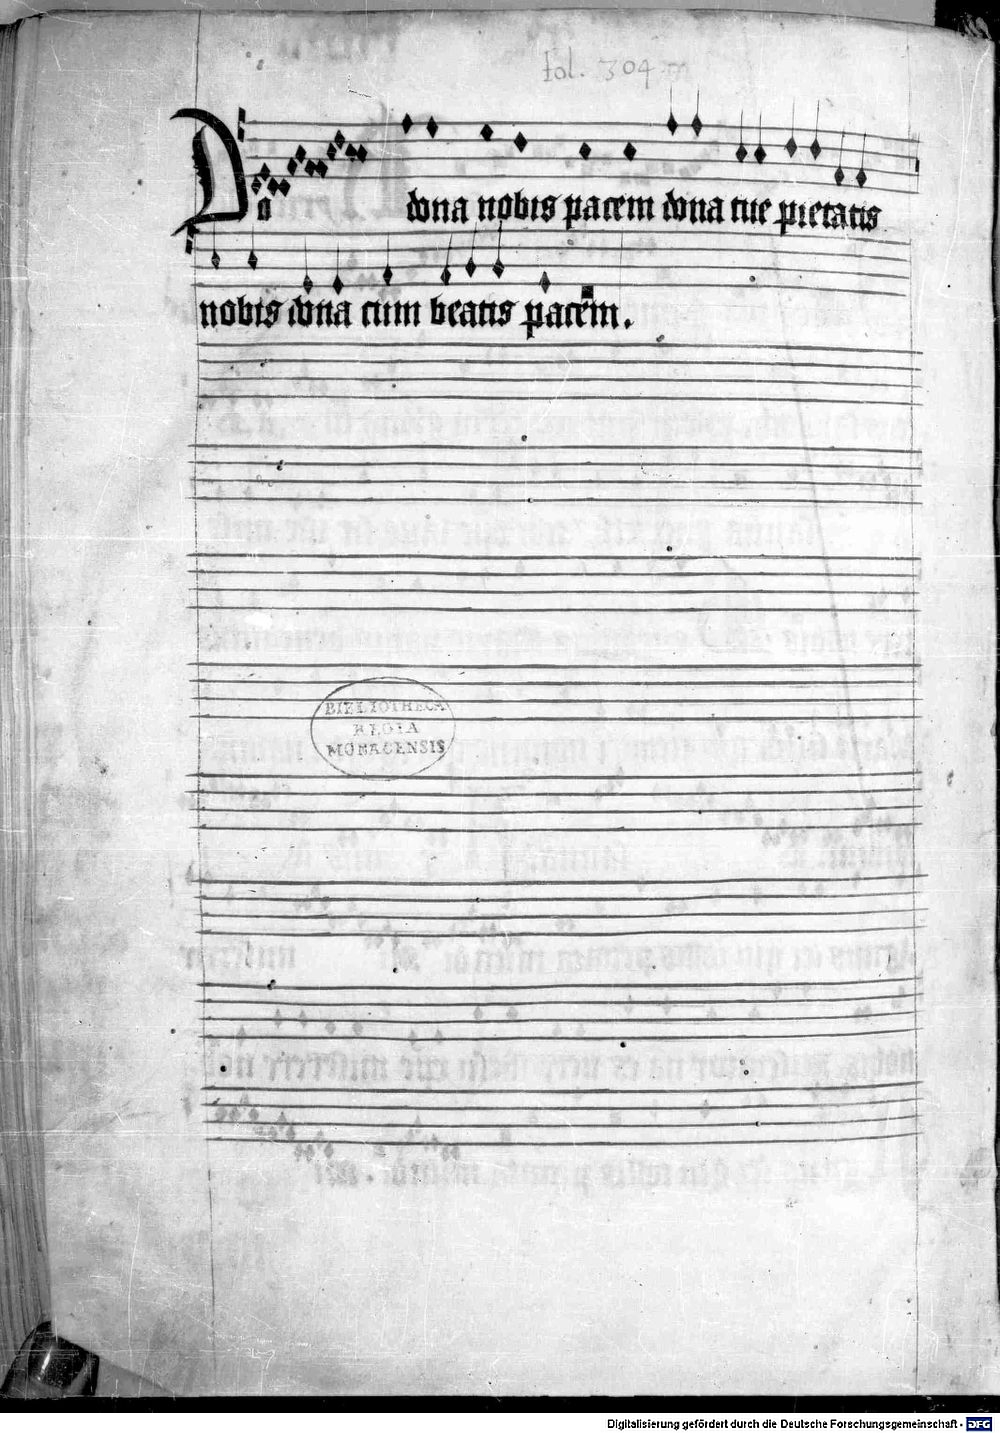 fol. 304
Do dona nobis pacem dona tue pietatis
nobis dona cum beatis pacem.
BIBLIOTHECA
REGIA
MONACENSIS
Digitalisierung gefördert durch die Deutsche Forschungsgemeinschaft - DFG